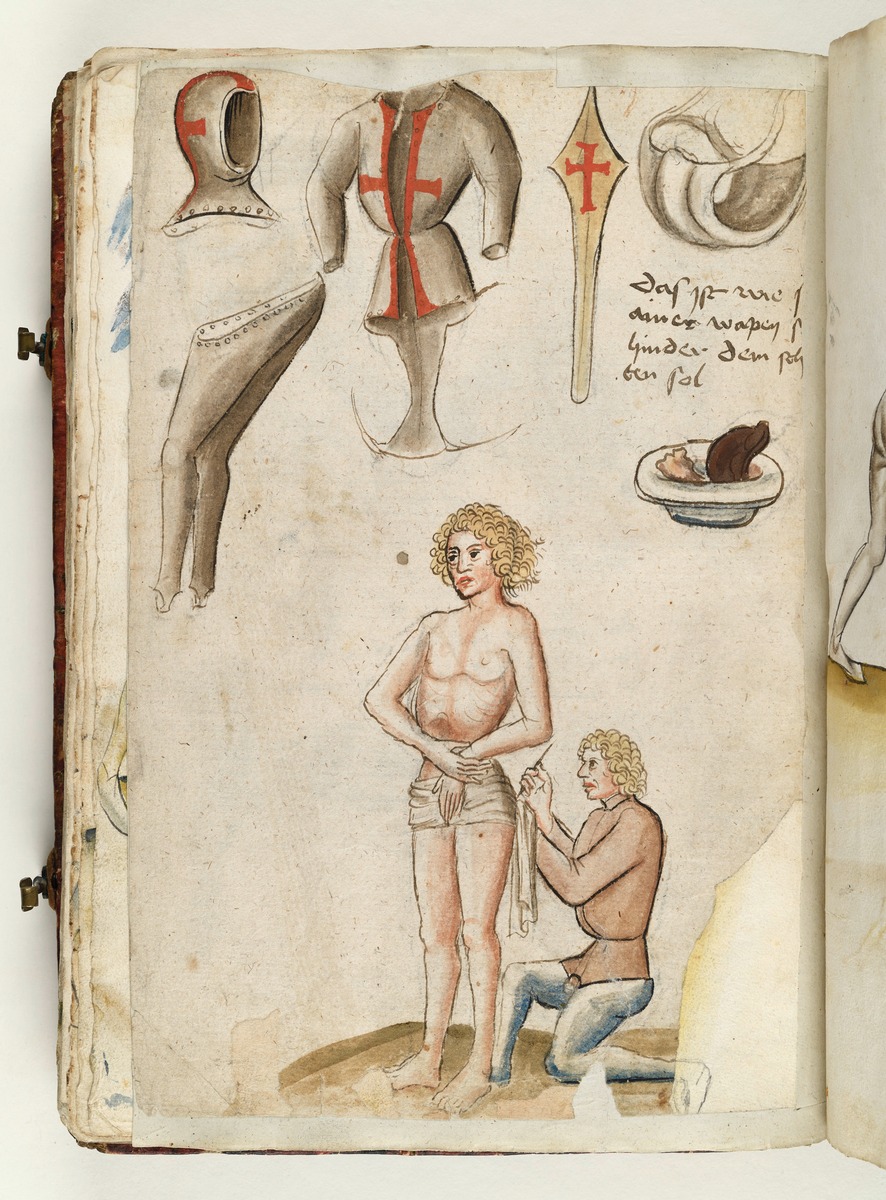 das ist wie
ainer wapen
hinder dem sch
ten sol